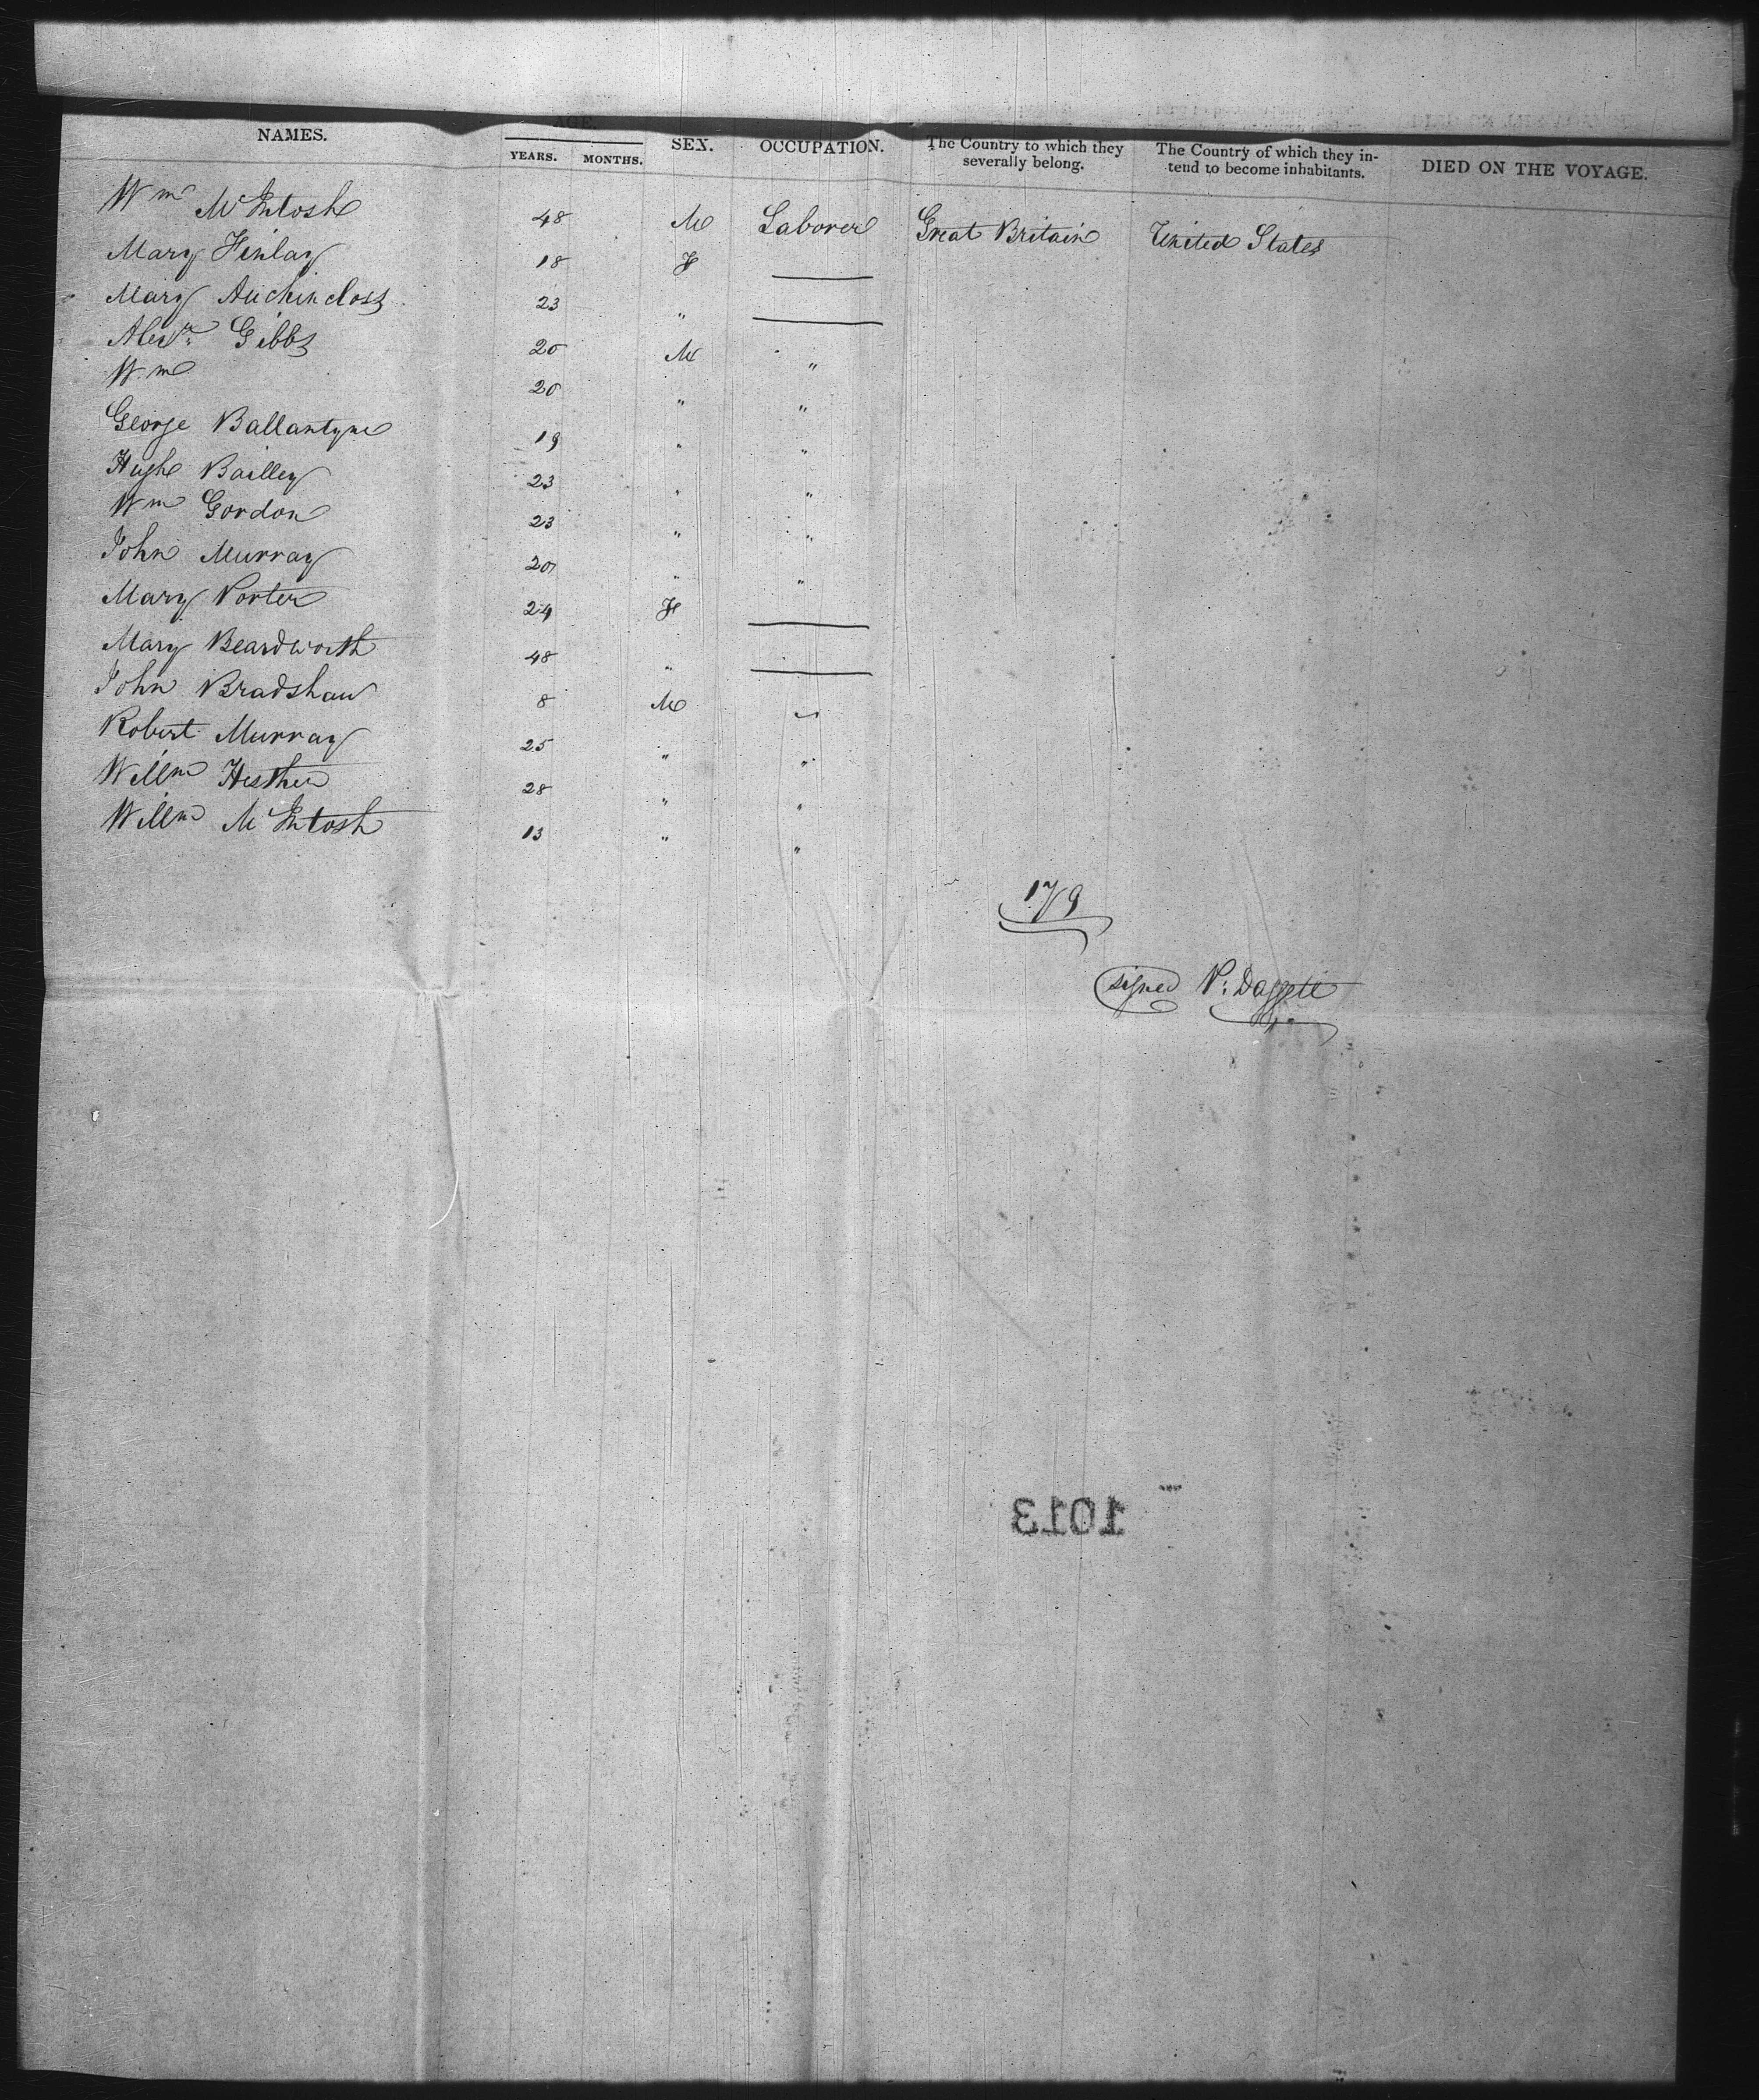 NAMES. AGE. YEARS. MONTHS. SEX. OCCUPATION. The Country to which they severally belong. The Country of which they intend to become inhabitants. DIED ON THE VOYAGE.
Wm McIntosh 48 M Laborer Great Britain United States
Mary Finlay 18 F —
Mary Auchincloss 23 " —
Alexr. Gibbs 20 M "
Wm 20 " "
George Ballantyne 19 " "
Hugh Bailley 23 " "
Wm Gordon 23 " "
John Murray 20 " "
Mary Porter 24 F —
Mary Beardworth 48 " —
John Bradshaw 8 M "
Robert Murray 25 " "
Willm Hesther 28 " "
Willm McIntosh 13 " "
179
signed N: Daggett
1013